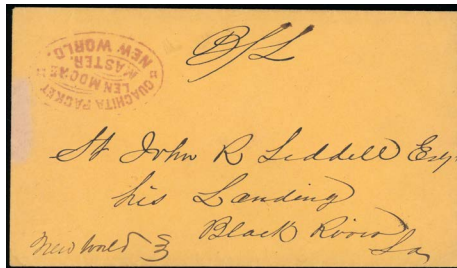 B/L
OUACHITA PACKET
LEN MOORE
MASTER.
NEW WORLD.
St John R Liddell Esqr
his Landing
Black River
La
New World